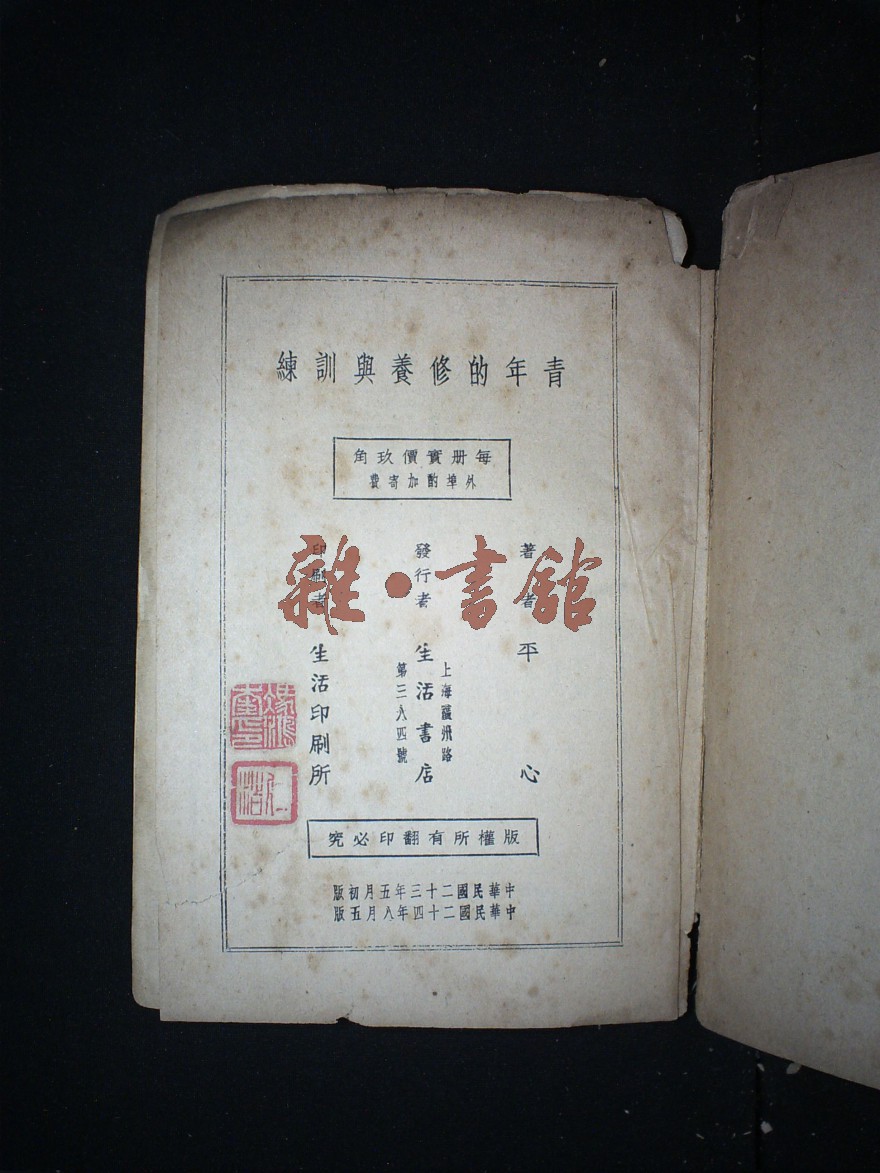 青年的修養與訓練
每册實價玖角
外埠酌加寄費
著者 平心
發行者 生活書店
上海福州路
第三八四號
印刷者 生活印刷所
版權所有翻印必究
中華民國二十三年五月初版
中華民國二十四年八月五版
雜·書館